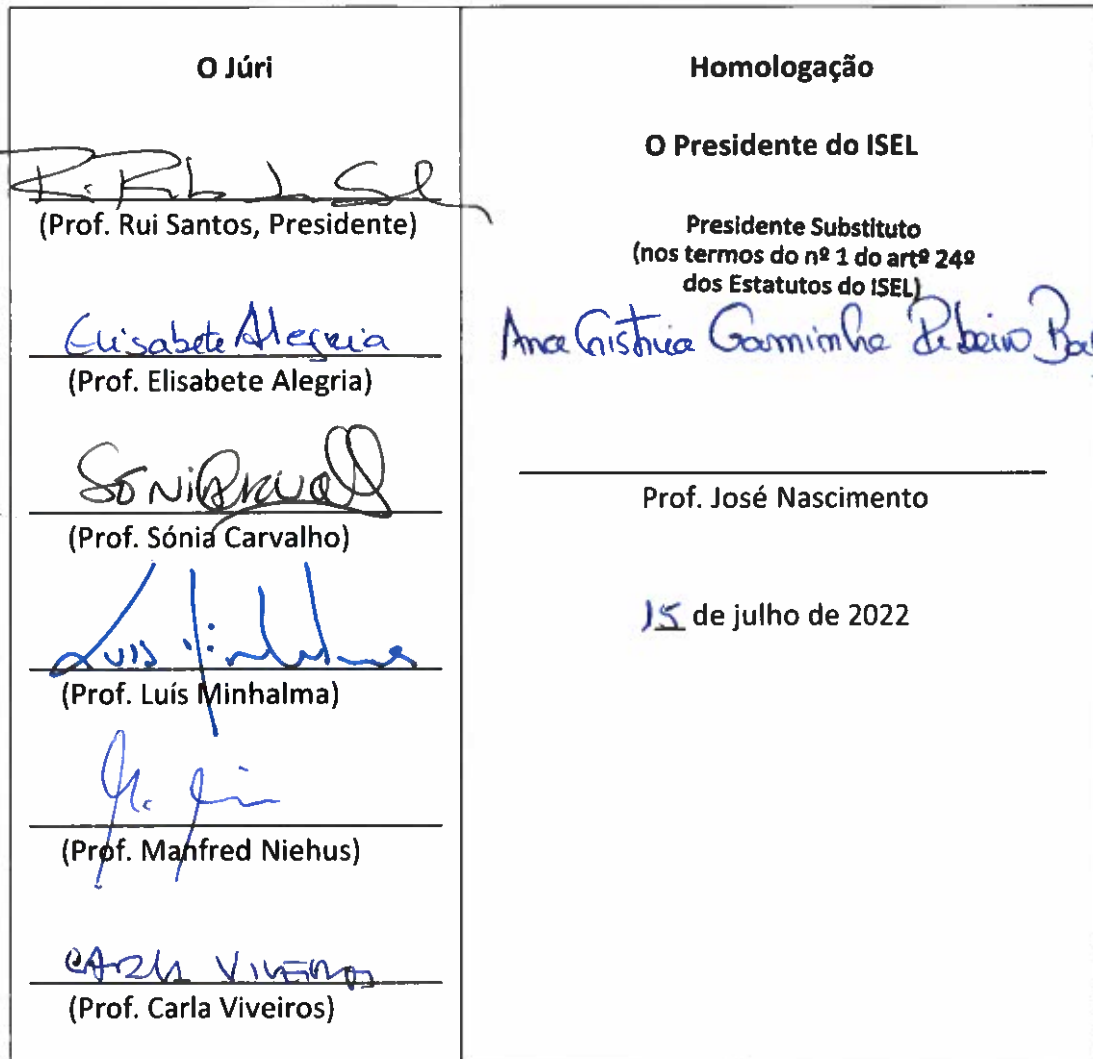 O Júri
(Prof. Rui Santos, Presidente)
Elisabete Alegria
(Prof. Elisabete Alegria)
(Prof. Sónia Carvalho)
Luis
(Prof. Luís Minhalma)
(Prof. Manfred Niehus)
CARLA VIVEIROS
(Prof. Carla Viveiros)
Homologação
O Presidente do ISEL
Presidente Substituto
(nos termos do nº 1 do artº 24º
dos Estatutos do ISEL)
Ana Cristina Gaminha Ribeiro
Prof. José Nascimento
15 de julho de 2022